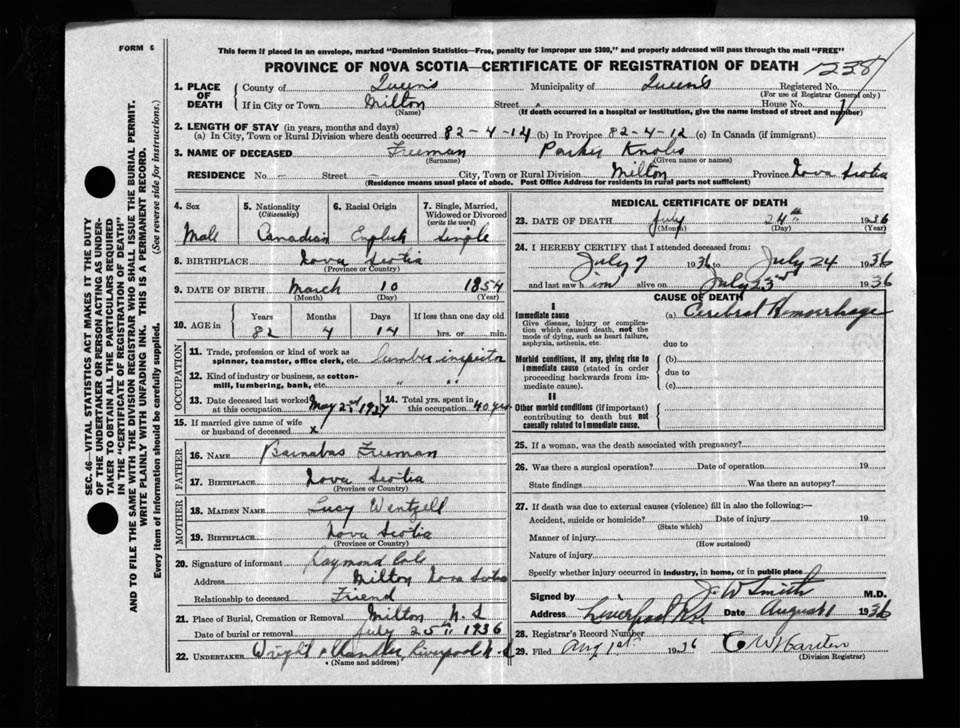 FORM 6
This form if placed in an envelope, marked "Dominion Statistics—Free, penalty for improper use $300," and properly addressed will pass through the mail "FREE"
PROVINCE OF NOVA SCOTIA—CERTIFICATE OF REGISTRATION OF DEATH 1238
1. PLACE OF DEATH
County of Queens Municipality of Queens Registered No.
(For use of Registrar General only)
If in City or Town Milton Street " House No.
(Name) (If death occurred in a hospital or institution, give the name instead of street and number)
2. LENGTH OF STAY (in years, months and days)
(a) In City, Town or Rural Division where death occurred 82-4-14 (b) In Province 82-4-12 (c) In Canada (if immigrant)
3. NAME OF DECEASED Freeman Parker Knobs
(Surname) (Given name or names)
RESIDENCE No. – Street – City, Town or Rural Division Milton Province Nova Scotia
(Residence means usual place of abode. Post Office Address for residents in rural parts not sufficient)
4. Sex 5. Nationality (Citizenship) 6. Racial Origin 7. Single, Married, Widowed or Divorced (write the word)
Male Canadian English Single
8. BIRTHPLACE Nova Scotia
(Province or Country)
9. DATE OF BIRTH March 10 1854
(Month) (Day) (Year)
10. AGE in Years Months Days If less than one day old
82 4 14 hrs. or min.
OCCUPATION
11. Trade, profession or kind of work as spinner, teamster, office clerk, etc. Lumber inspector
12. Kind of industry or business, as cotton-mill, lumbering, bank, etc. " "
13. Date deceased last worked at this occupation May 23 1927 14. Total yrs. spent in this occupation 40 yrs
15. If married give name of wife or husband of deceased x
FATHER
16. NAME Barnabas Freeman
17. BIRTHPLACE Nova Scotia
(Province or Country)
MOTHER
18. MAIDEN NAME Lucy Wentzell
19. BIRTHPLACE Nova Scotia
(Province or Country)
20. Signature of informant Raymond Cole
Address Milton Nova Scotia
Relationship to deceased Friend
21. Place of Burial, Cremation or Removal Milton N.S
Date of burial or removal July 25th 1936
22. UNDERTAKER Wright Liverpool N.S
(Name and address)
MEDICAL CERTIFICATE OF DEATH
23. DATE OF DEATH July 24th 1936
(Month) (Day) (Year)
24. I HEREBY CERTIFY that I attended deceased from:
July 7 1936 to July 24 1936
and last saw him alive on July 23rd 1936
CAUSE OF DEATH
I
Immediate cause (a) Cerebral Hemorrhage
Give disease, injury or complication which caused death, not the mode of dying, such as heart failure, asphyxia, asthenia, etc.
due to
Morbid conditions, if any, giving rise to immediate cause (stated in order proceeding backwards from immediate cause).
(b)
due to
(c)
II
Other morbid conditions (if important) contributing to death but not causally related to immediate cause.
25. If a woman, was the death associated with pregnancy?
26. Was there a surgical operation? Date of operation 19
State findings Was there an autopsy?
27. If death was due to external causes (violence) fill in also the following:—
Accident, suicide or homicide? Date of injury 19
(State which)
Manner of injury
(How sustained)
Nature of injury
Specify whether injury occurred in industry, in home, or in public place
Signed by J W Smith M.D.
Address Liverpool N.S. Date August 1 1936
28. Registrar's Record Number
29. Filed Aug 1st 1936 C W Harden
(Division Registrar)
SEC. 46—VITAL STATISTICS ACT MAKES IT THE DUTY
OF THE UNDERTAKER OR PERSON ACTING AS UNDER-
TAKER TO OBTAIN ALL THE PARTICULARS REQUIRED
IN THE "CERTIFICATE OF REGISTRATION OF DEATH"
AND TO FILE THE SAME WITH THE DIVISION REGISTRAR WHO SHALL ISSUE THE BURIAL PERMIT.
WRITE PLAINLY WITH UNFADING INK. THIS IS A PERMANENT RECORD.
Every item of information should be carefully supplied. (See reverse side for instructions.)